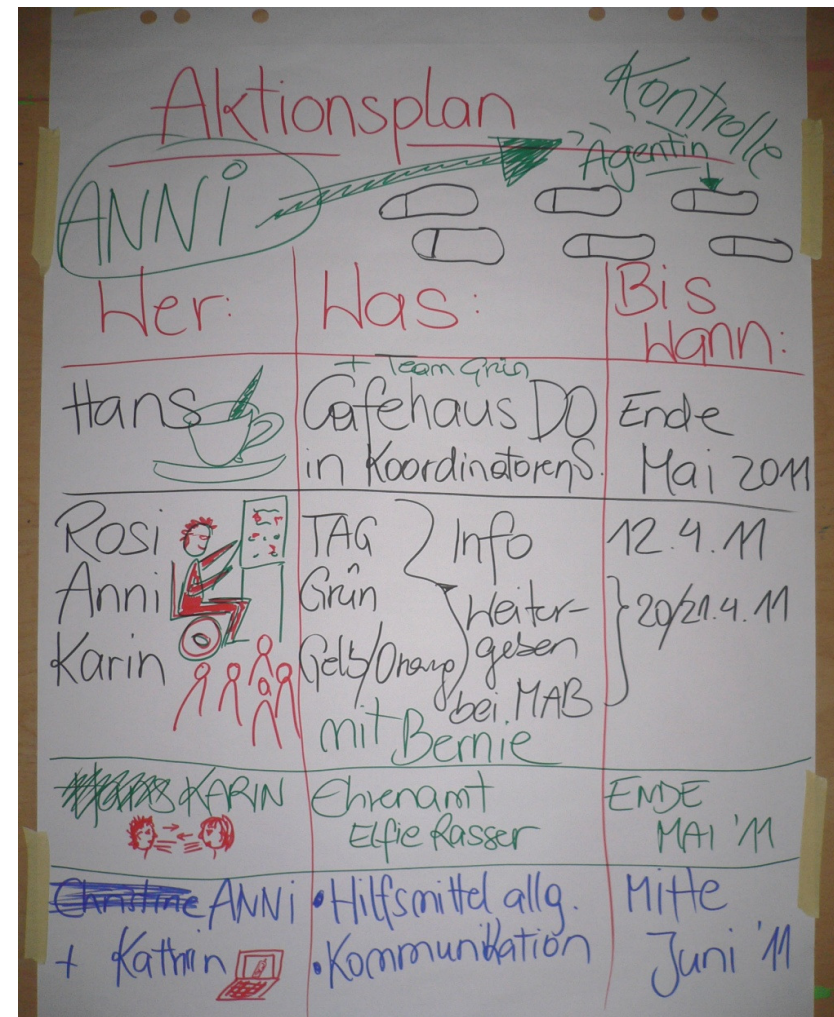 Aktionsplan
Kontrolle
Agentin
ANNi
Wer:
Was:
Bis
Wann:
Hans
+ Team Grün
Cafehaus DO
in KoordinatorenS.
Ende
Mai 2011
Rosi
Anni
Karin
TAG
Grün
Gelb/Orang
Info
Weiter-
geben
bei MAB
mit Bernie
12.4.11
20/21.4.11
Hans KARIN
Ehrenamt
Elfie Rasser
ENDE
MAI '11
Christine ANNi
+ Kathrin
• Hilfsmittel allg.
• Kommunikation
Mitte
Juni '11